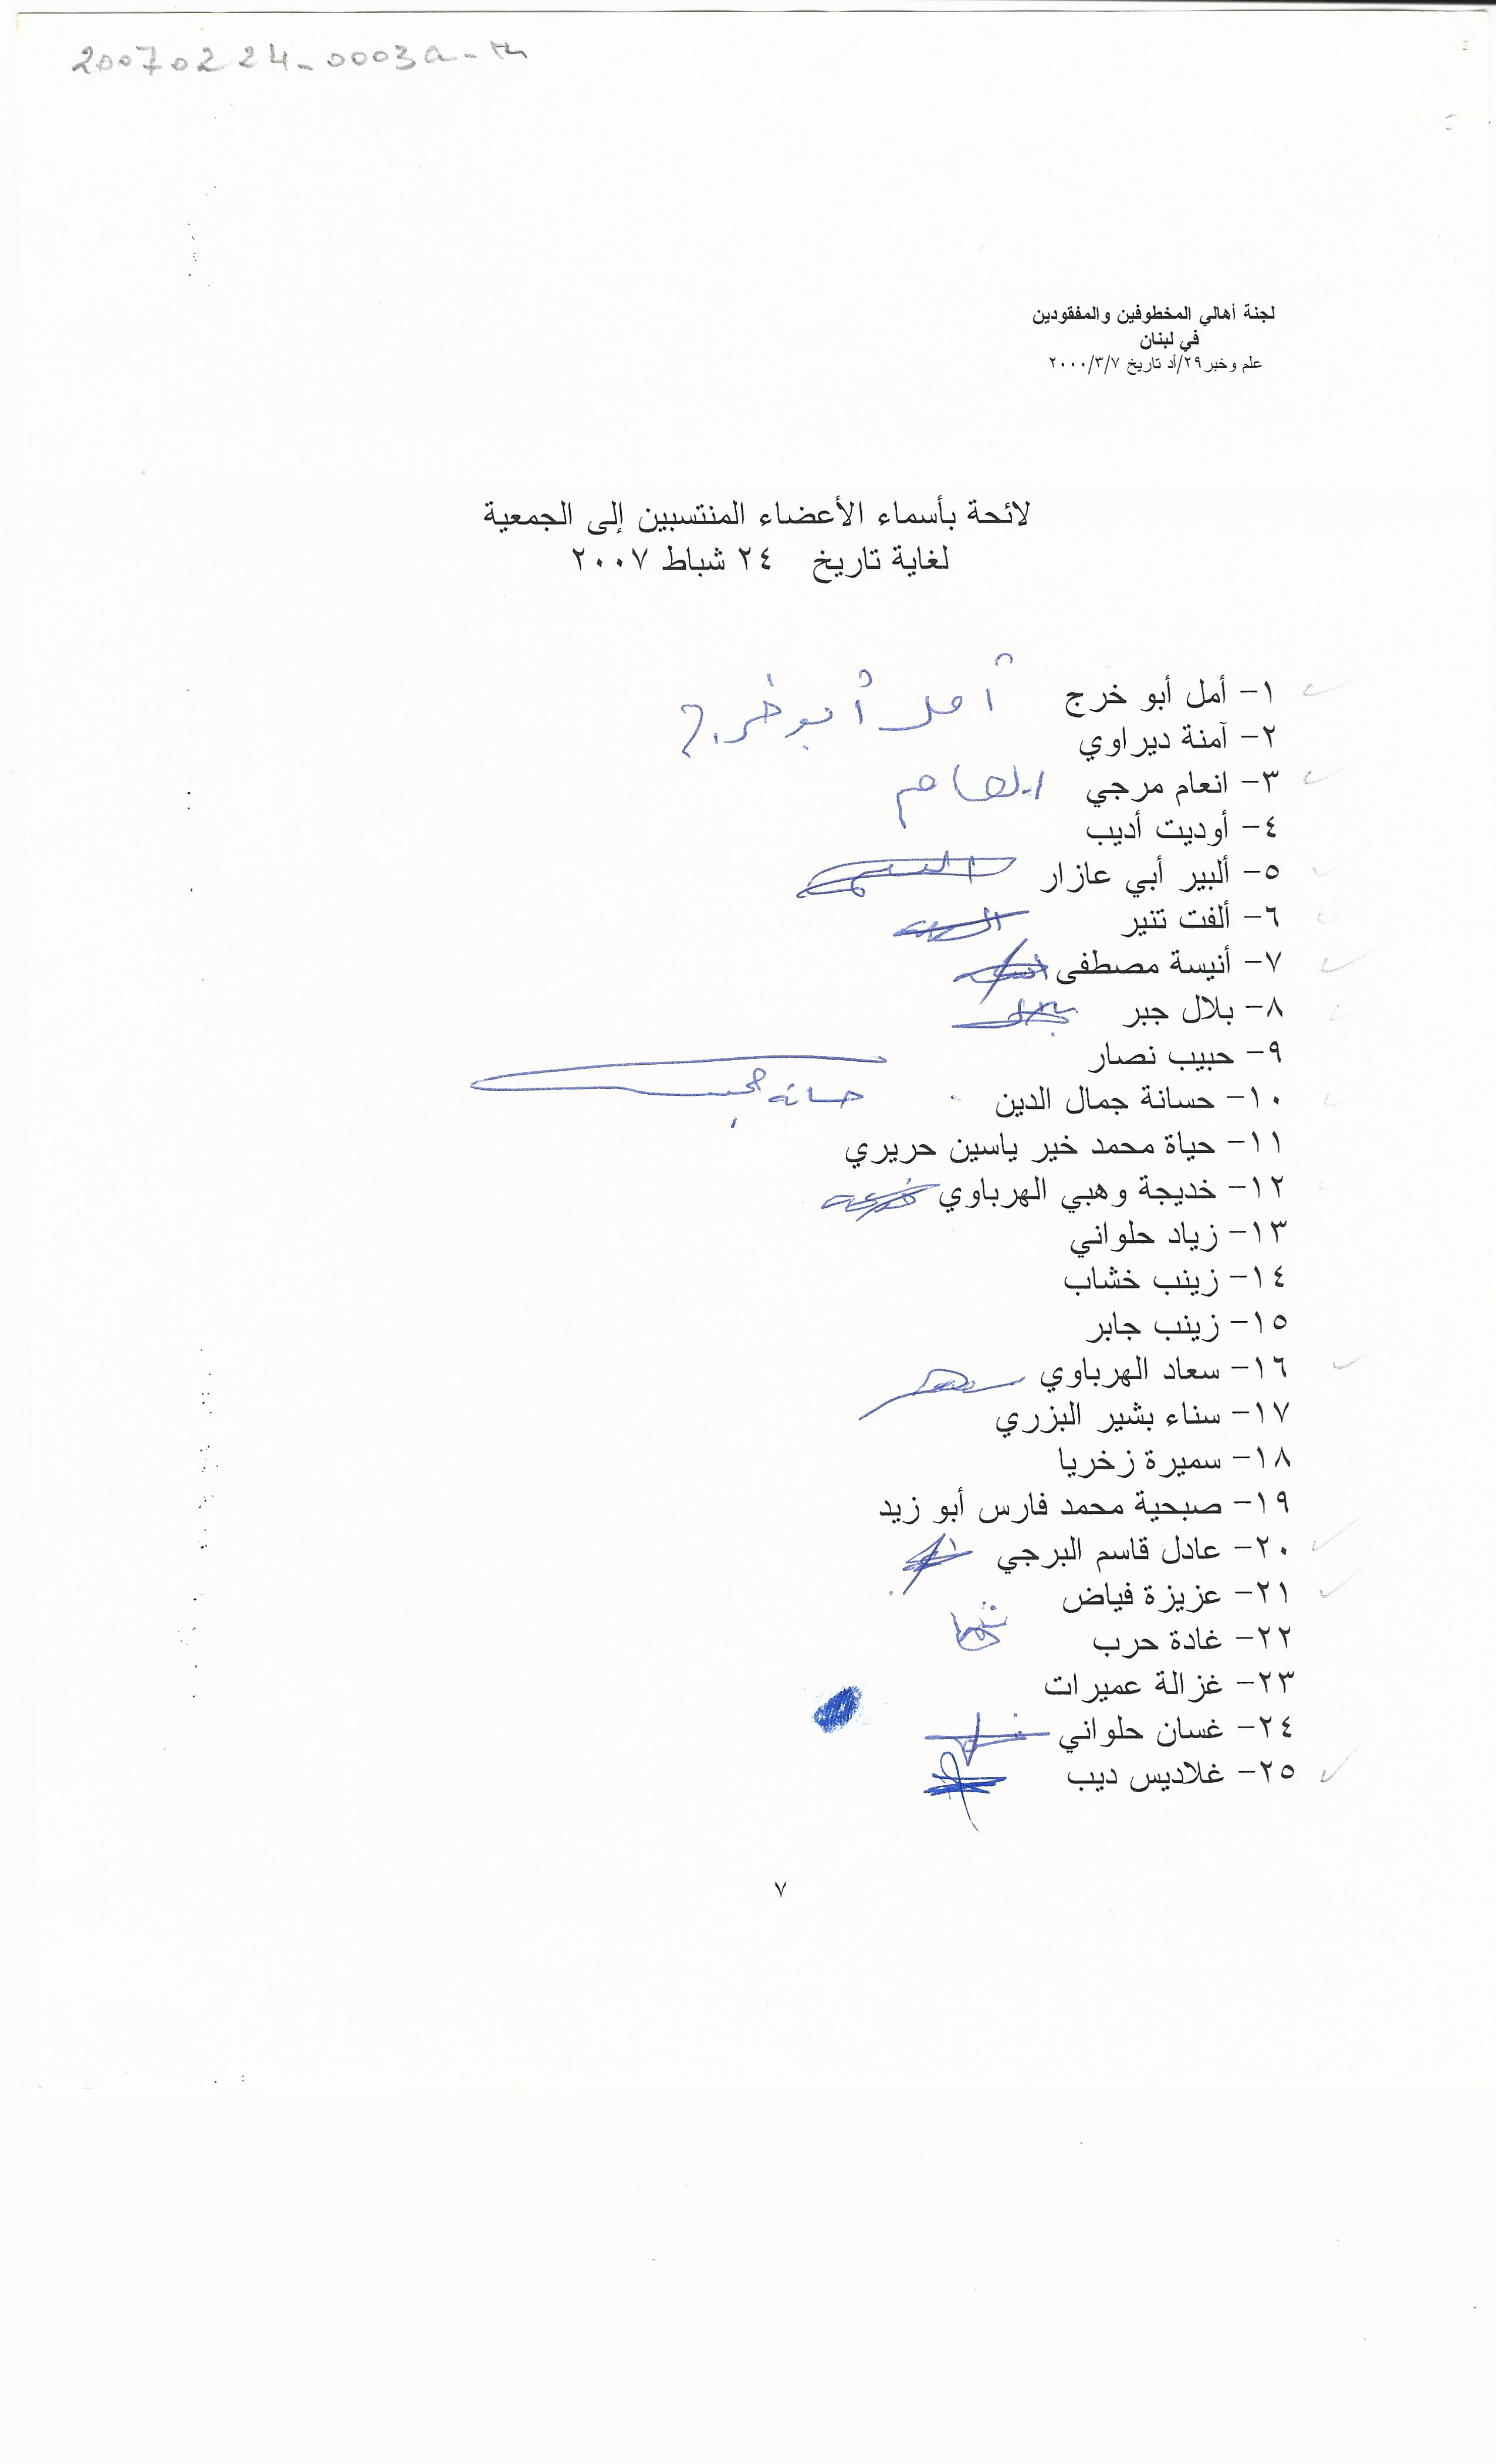 20070224-0003a-m
لجنة أهالي المخطوفين والمفقودين
في لبنان
علم وخبر ٢٩/أد تاريخ ٢٠٠٠/٣/٧
لائحة بأسماء الأعضاء المنتسبين إلى الجمعية
لغاية تاريخ ٢٤ شباط ٢٠٠٧
١- أمل أبو خرج أمل أبو خرج
٢- آمنة ديراوي
٣- انعام مرجي انعام
٤- أوديت أديب
٥- ألبير أبي عازار
٦- ألفت تنير
٧- أنيسة مصطفى
٨- بلال جبر
٩- حبيب نصار
١٠- حسانة جمال الدين حسانه
١١- حياة محمد خير ياسين حريري
١٢- خديجة وهبي الهرباوي
١٣- زياد حلواني
١٤- زينب خشاب
١٥- زينب جابر
١٦- سعاد الهرباوي
١٧- سناء بشير البزري
١٨- سميرة زخريا
١٩- صبحية محمد فارس أبو زيد
٢٠- عادل قاسم البرجي
٢١- عزيزة فياض
٢٢- غادة حرب
٢٣- غزالة عميرات
٢٤- غسان حلواني
٢٥- غلاديس ديب
٧